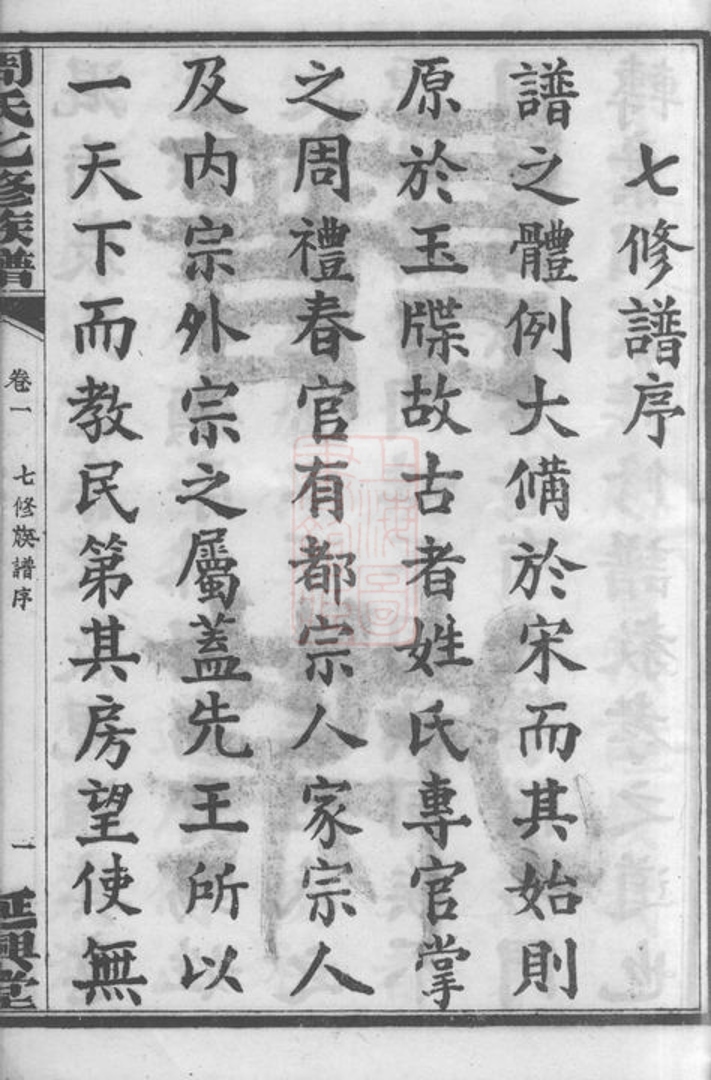 七修譜序
譜之體例大備於宋而其始則
原於玉牒故古者姓氏專官掌
之周禮春官有都宗人家宗人
及内宗外宗之屬蓋先王所以
一天下而教民第其房望使無
周氏七修族譜
卷一
七修族譜序
一
延興堂